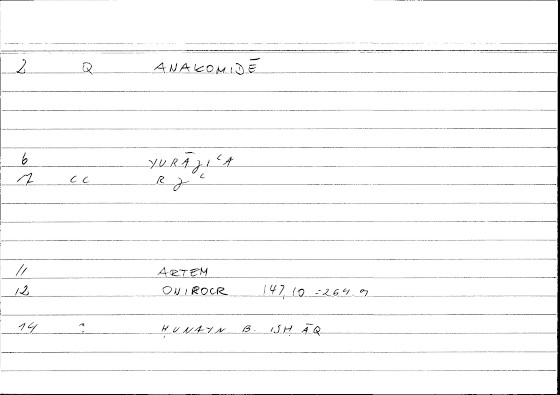 2 Q ANAKOMIDĒ
6 YURĀǧIʿA
7 CC R ǧ ʿ
11 ARTEM
12 ONIROCR 147,10 = 264.9
14 : ḤUNAYN B. ISḤĀQ